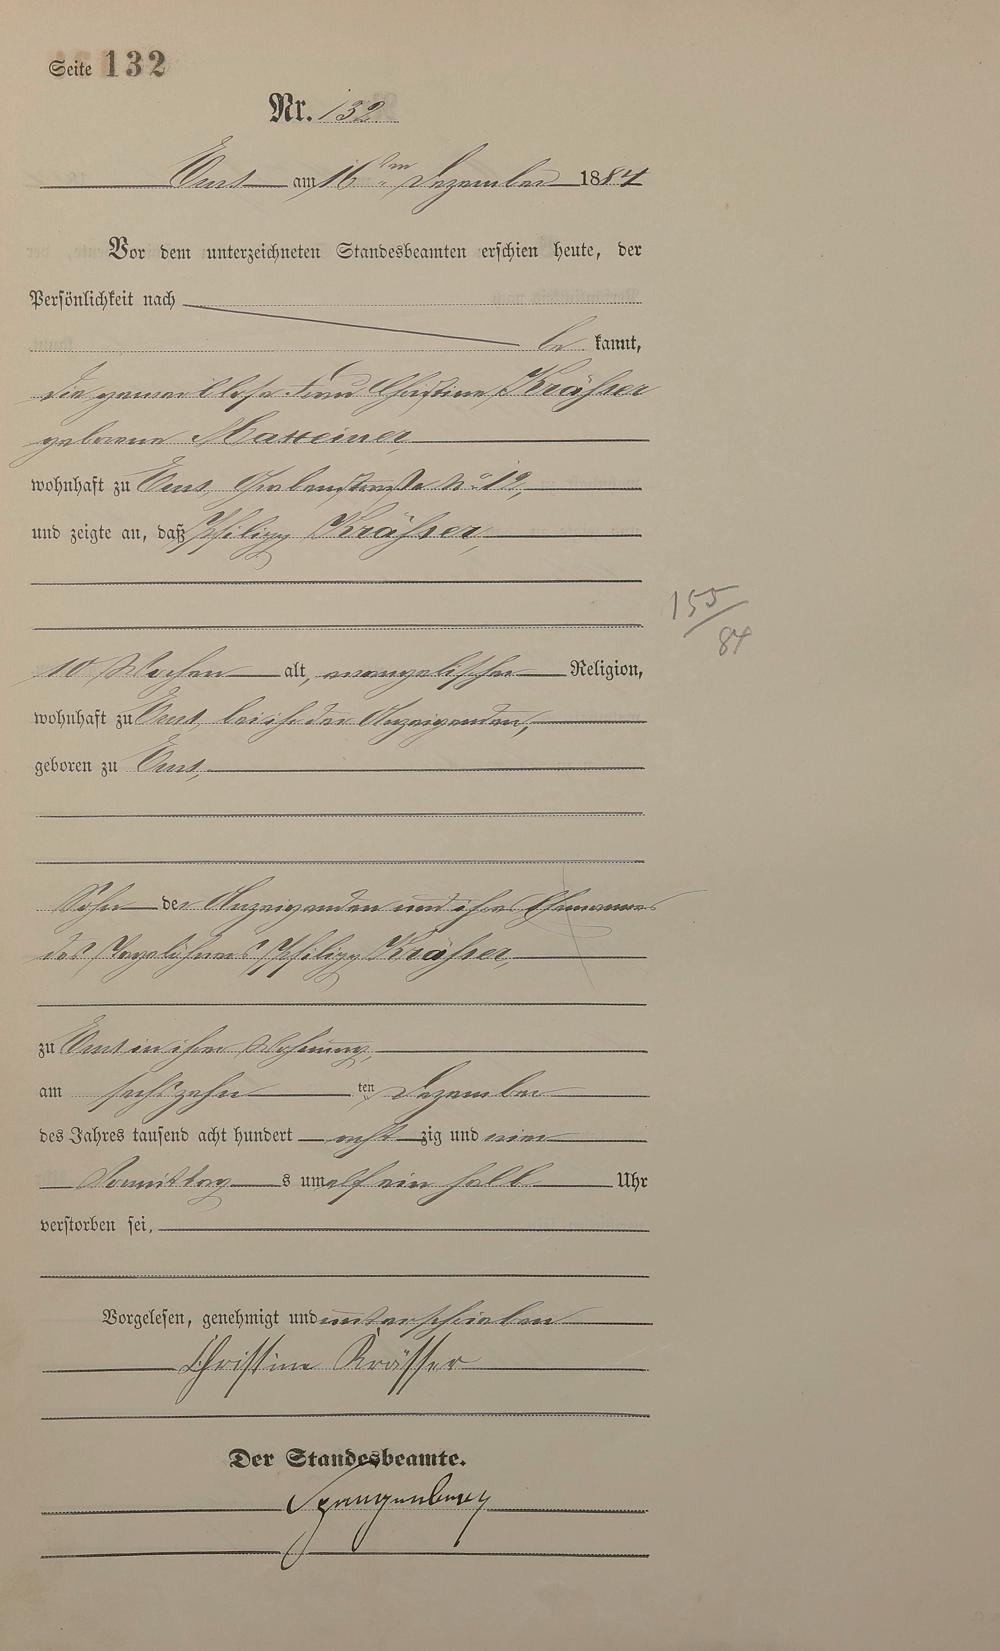 Seite 132
Nr. 132
Ems am 16ten Dezember 1884
Vor dem unterzeichneten Standesbeamten erschien heute, der
Persönlichkeit nach
be kannt,
die gewerblose Frau Christine Krässer
geborene Masseiner,
wohnhaft zu Ems, Grabenstraße No 12,
und zeigte an, daß Philipp Krässer,
155/84
10 Wochen alt, evangelischer Religion,
wohnhaft zu Ems, bei der Anzeigenden,
geboren zu Ems,
Sohn der Anzeigenden und ihres Ehemannes
des Tagelöhners Philipp Krässer,
zu Ems in ihrer Wohnung,
am sechszehn ten Dezember
des Jahres tausend acht hundert acht zig und vier
Vormittag s um elf ein halb Uhr
verstorben sei,
Vorgelesen, genehmigt und unterschrieben
Christine Krässer
Der Standesbeamte.
Spangenberg